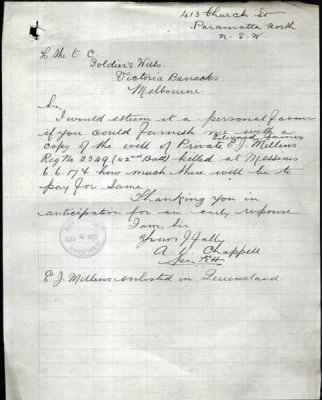 413 Church St
Parramatta North
N. S. W
To the O. C.
Soldier's Wills
Victoria Barracks
Melbourne
Sir,
I would esteem it a personal favour
if you could furnish me with a
Edward James
copy of the will of Private E. J. Millens
Reg No 2369 (42nd Batt) killed at Messines
6.6.17 & how much there will be to
pay for same.
Thanking you in
anticipation for an early response
I am, Sir
Yours Ffully
A. V. Chappell
E J. Millens enlisted in Queensland